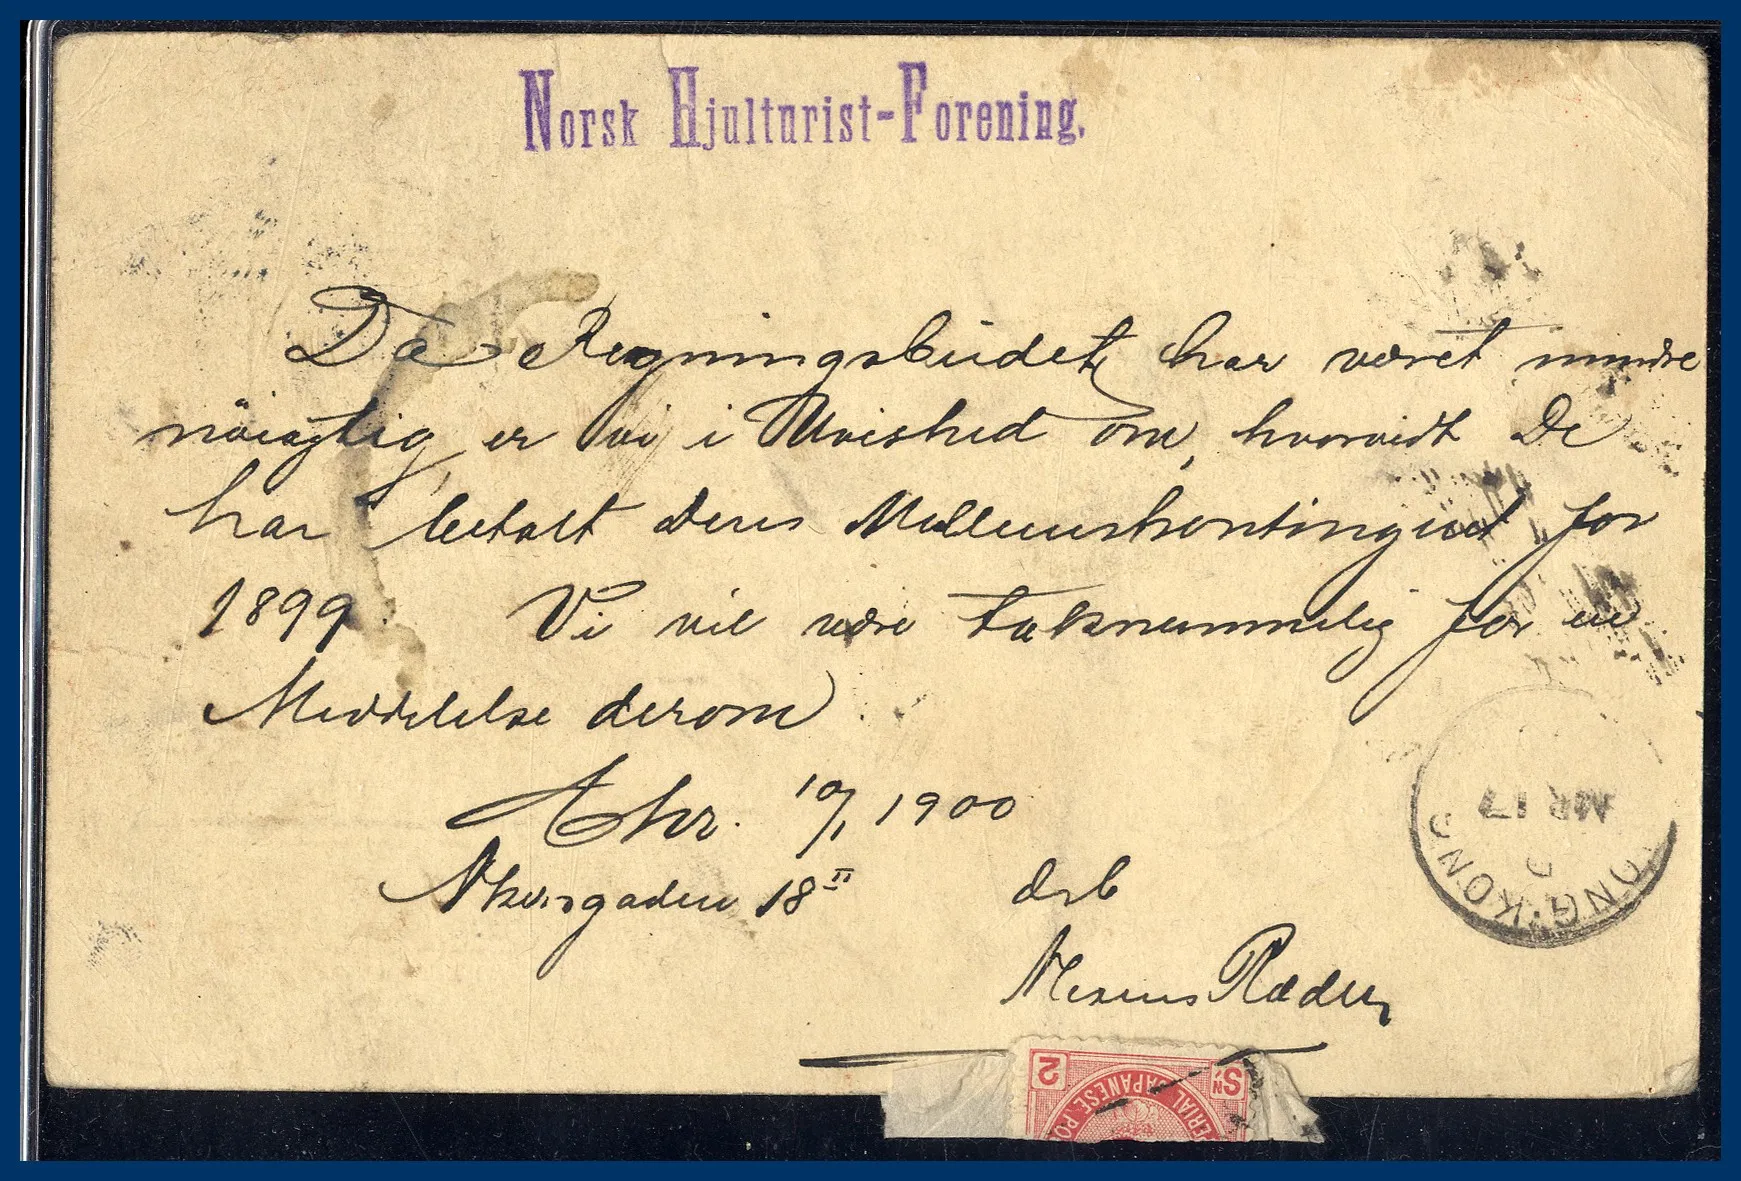 Norsk Hjulturist-Forening.
Da Regningsbudet har været mindre
nöiagtig, er vi i Uvished om, hvorvidt De
har betalt Deres Medlemskontingent for
1899. Vi vil være taknemmelig for en
Meddelelse derom
Chr. 10/1 1900
Akersgaden 18 II
drb
Ræder
HONG KONG
MR 17
2 SN
IMPERIAL JAPANESE POST